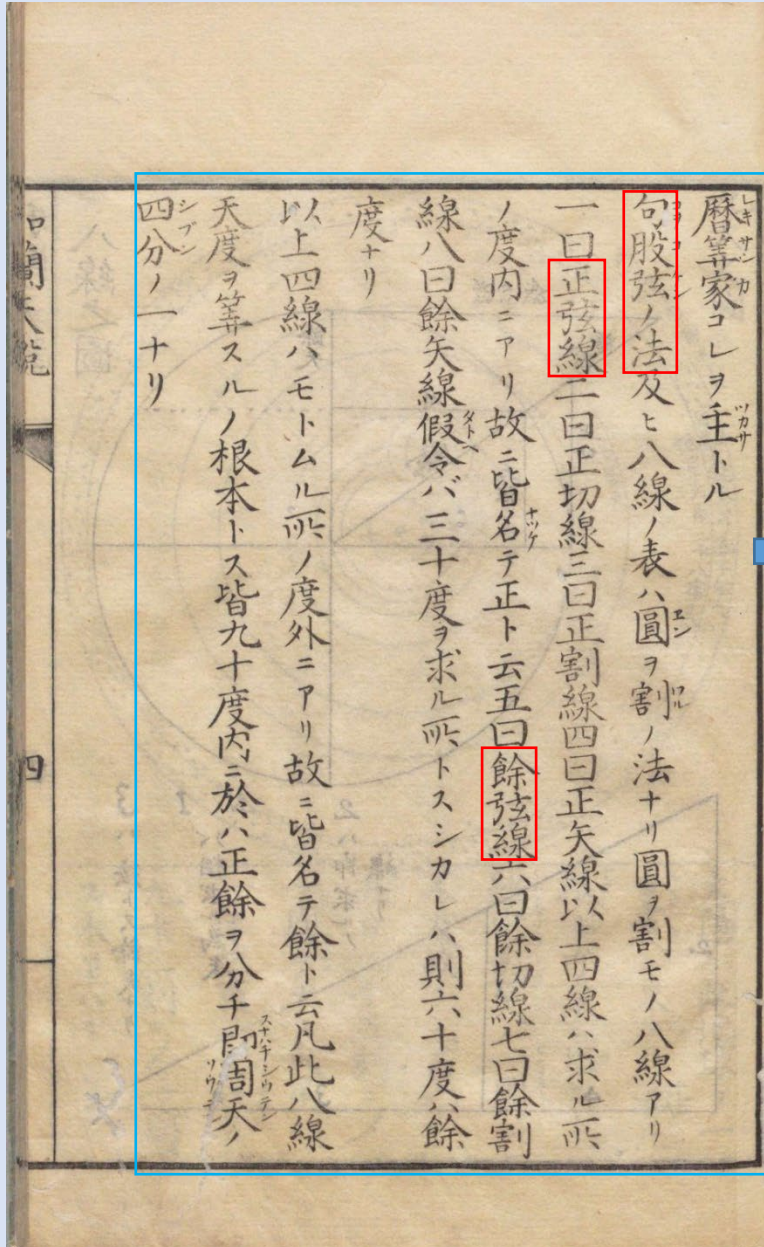 暦筭家コレヲ主トル
句股弦ノ法及ヒ八線ノ表ハ圓ヲ割ノ法ナリ圓ヲ割モノ八線アリ
一曰正弦線二曰正切線三曰正割線四曰正矢線以上四線ハ求ル所
ノ度内ニアリ故ニ皆名テ正ト云五曰餘弦線六曰餘切線七曰餘割
線八曰餘矢線假令バ三十度ヲ求ル所トスシカレハ則六十度ハ餘
度ナリ
以上四線ハモトムル所ノ度外ニアリ故ニ皆名テ餘ト云凡此八線
天度ヲ筭スルノ根本トス皆九十度内ニ於ハ正餘ヲ分チ即周天ノ
四分ノ一ナリ
四